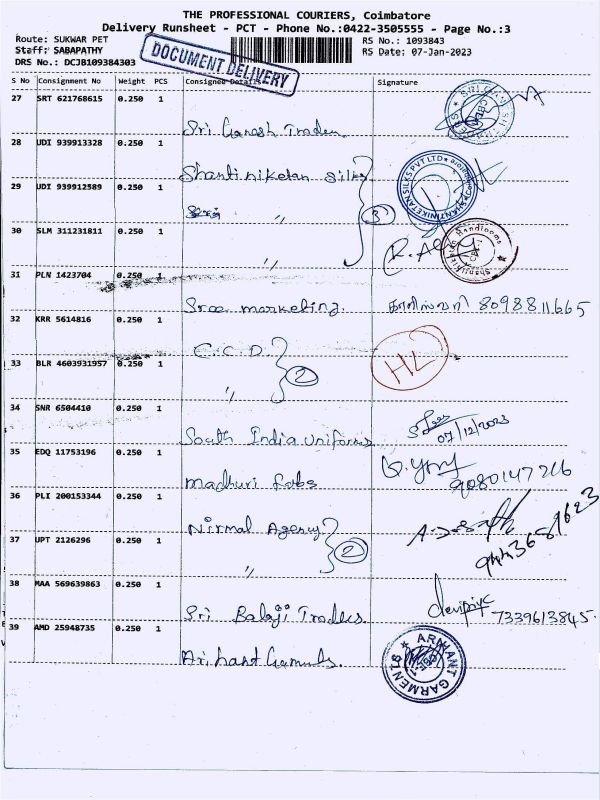 THE PROFESSIONAL COURIERS, Coimbatore
Delivery Runsheet - PCT - Phone No.:0422-3505555 - Page No.:3
Route: SUKWAR PET
RS No.: 1093843
Staff: SABAPATHY
RS Date: 07-Jan-2023
DRS No.: DCJB109384303
DOCUMENT DELIVERY
S No Consignment No Weight PCS Consignee Details Signature
27 SRT 621768615 0.250 1
Sri Ganesh Traders
28 UDI 939913328 0.250 1
Shantiniketan silks
SHANTINIKETAN SILKS PVT LTD
29 UDI 939912589 0.250 1
〃 3
30 SLM 311231811 0.250 1
〃
31 PLN 1423704 0.250 1
Sree marketing. 8098811665
32 KRR 5614816 0.250 1
C.C.D.
33 BLR 4603931957 0.250 1
〃 2 HL
34 SNR 6504410 0.250 1
South India Uniforms 07/12/2023
35 EDQ 11753196 0.250 1
madhuri fabs 9080147266
36 PLI 200153344 0.250 1
Nirmal Agency
37 UPT 2126296 0.250 1
〃 2 9443681623
38 MAA 569639863 0.250 1
Sri Balaji Traders 7339613845.
39 AMD 25948735 0.250 1
Arihant Garments.
ARIHANT GARMENTS